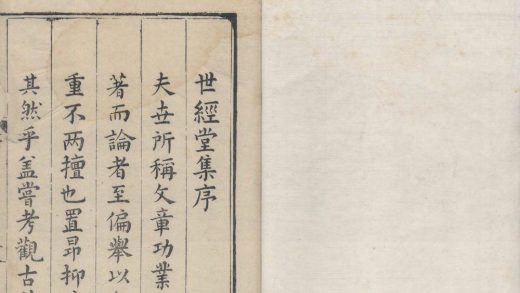 世經堂集序
夫世所稱文章功業
著而論者至偏舉以
重不两擅也置昂抑
其然乎盖嘗考觀古